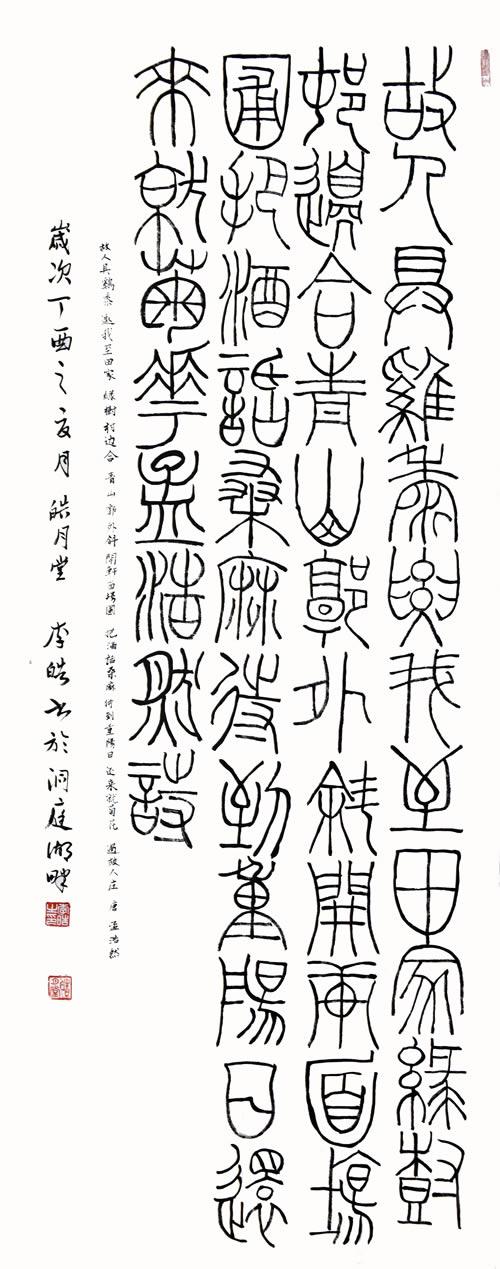 故人具雞黍要我至田家緑樹
邨邊合青山郭外斜開軒面場
圃把酒話桑麻待到重陽日還
來就菊花孟浩然詩
故人具鷄黍 邀我至田家 緑樹村边合 青山郭外斜 開軒面場圃 把酒話桑麻 待到重陽日 还来就菊花 過故人庄 唐 孟浩然
歲次丁酉之夏月 皓月堂 李皓书於洞庭湖畔